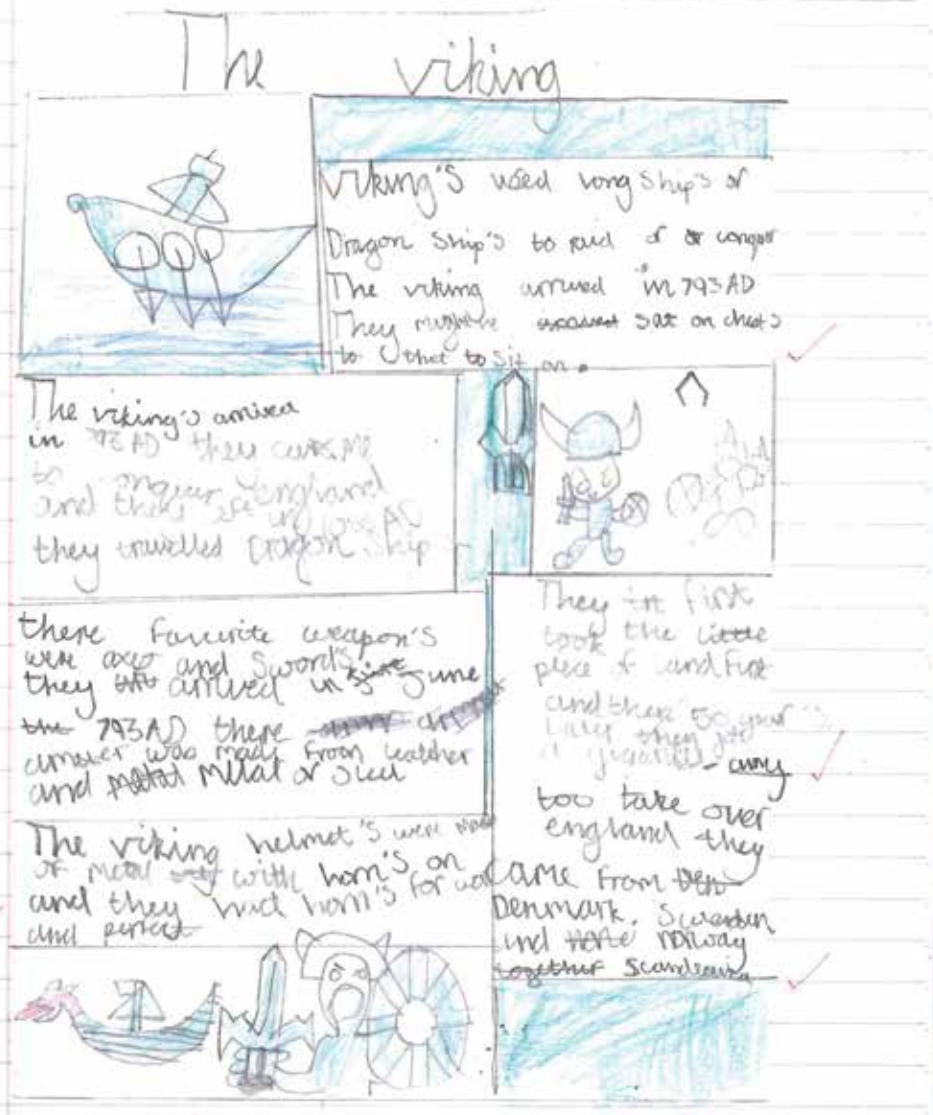 The viking
viking's used long ship's or
Dragon Ship's to raid or conquer
The viking arrived in 793AD
They might've sat on chests
to that to sit on.
The viking's arrived
in 793 AD they
to conquer england
and they
they travelled Dragon Ship's
there favurite weapon's
were axes and swords
they arrived in June
the 793AD there
armour was made from leather
and metal metal or steel
The viking helmet's were made
of metal with horn's on
and they had horn's for war
and
They first
took the little
piece of land First
and then 50 year's
later they got
a gigantic army
too take over
england they
came from Den
Denmark, Sweden
and norway
together